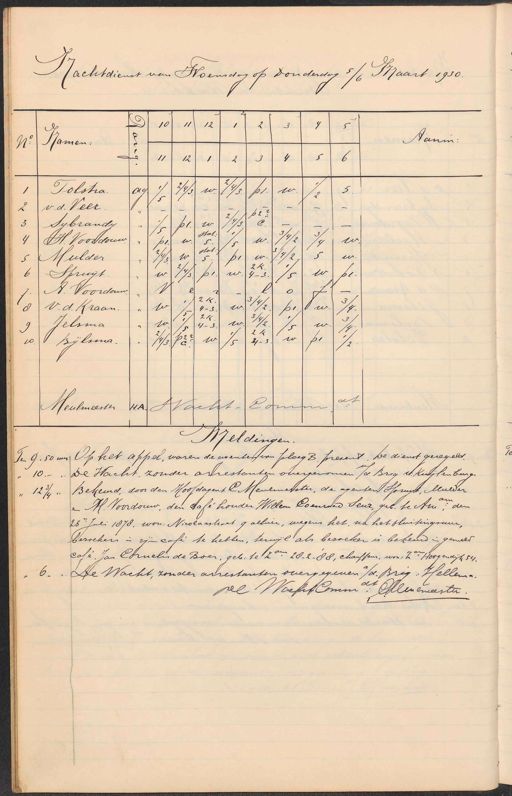 Nachtdienst van Woensdag op Donderdag 5/6 Maart 1930.
No Namen: Rang. 10 11 12 1 2 3 4 5 Aanm:
11 12 1 2 3 4 5 6
1 Tolstra ag 1/5 2/4/3 w 2/4/3 pt. w 1/2 5
2 v.d. Veer " – – – – – – – –
3 Sybrandy " 1/5 pt. w 2/4/3 – – –
4 H Voordouw " pt. w 5 1/5 w 3/4/2 3/4 w
5 Mulder " 2/4/3 w 5 pt. w 3/4/2 5 w
6 Spruyt " w 2/4/3 pt. w 2 K 4-3 1/5 w pt.
7. A. Voordouw " V e r l o f
8 v.d. Kraan " w 1/5 2 K 4-3 w 3/4/2 pt. w 3/4
9 Jelsma " w 1/5 2 K 4-3 w 3/4/2 1/5 w 3/4
10 Bijlsma. " 2/4/3 w 1/5 2 K 4-3 w pt. 1/2
Meulmeester H.A. Wacht-Comm. dt
Meldingen.
Te 9.50 uur Op het appel, waren de agenten van ploeg B present. De dienst geregeld.
" 10.– " De Wacht zonder arrestanten overgenomen v/d Brig.
" 12 3/4 " Bekeurd, door den Hoofdagent C. Meulmeester, de agenten Spruyt, Mulder
en H. Voordouw, den caféhouder Willem Coenraad geb. te den
25 Juli 1878, won. alhier, wegens het, na het sluitingsuur,
bezoekers in zijn café te hebben, terwijl als bezoeker is bekend in gemeld
café, Jan Cornelis de Boer, geb. te 20.2.88, chauffeur, won.
" 6. " De Wacht, zonder arrestanten overgegeven a/d. Brig. Hellema.
De Wacht Comm. dt
CMeulmeester.